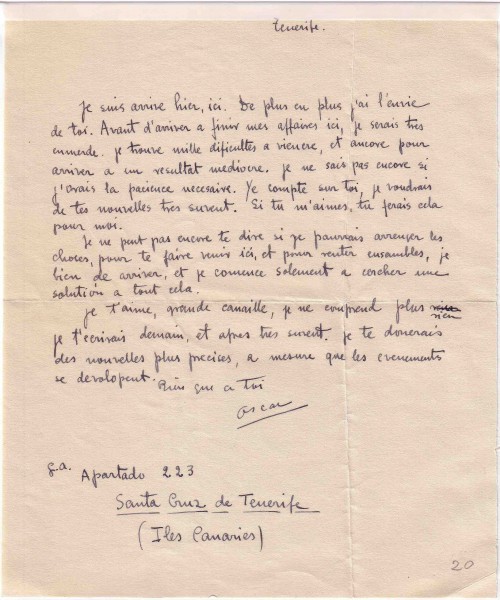 Tenerife.
Je suis arrive hier, ici. De plus en plus j'ai l'envie
de toi. Avant d'arriver a finir mes affaires ici, je serais tres
enmerde. je trouve mille dificultes a viencre, et ancore pour
arriver a un resultat mediocre. je ne sais pas encore si
j'avais la pacience necesaire. Je compte sur toi, je voudrais
de tes nouvelles tres suvent. Si tu m'aimes, tu ferais cela
pour moi.
Je ne peut pas encore te dire si je pouvrais arrenger les
choses, pour te faire venir ici, et pour renter ensambles, je
bien de arriver, et je comence solement a cercher une
solution a tout cela.
je t'aime, grande canaille, je ne comprend plus rien
je t'ecrirais demain, et apres tres suvent. je te donerais
des nouvelles plus precices, a mesure que les evenements
se devolopent. Rien que a toi
Oscar
g.a. Apartado 223
Santa Cruz de Tenerife
(Iles Canaries)
20